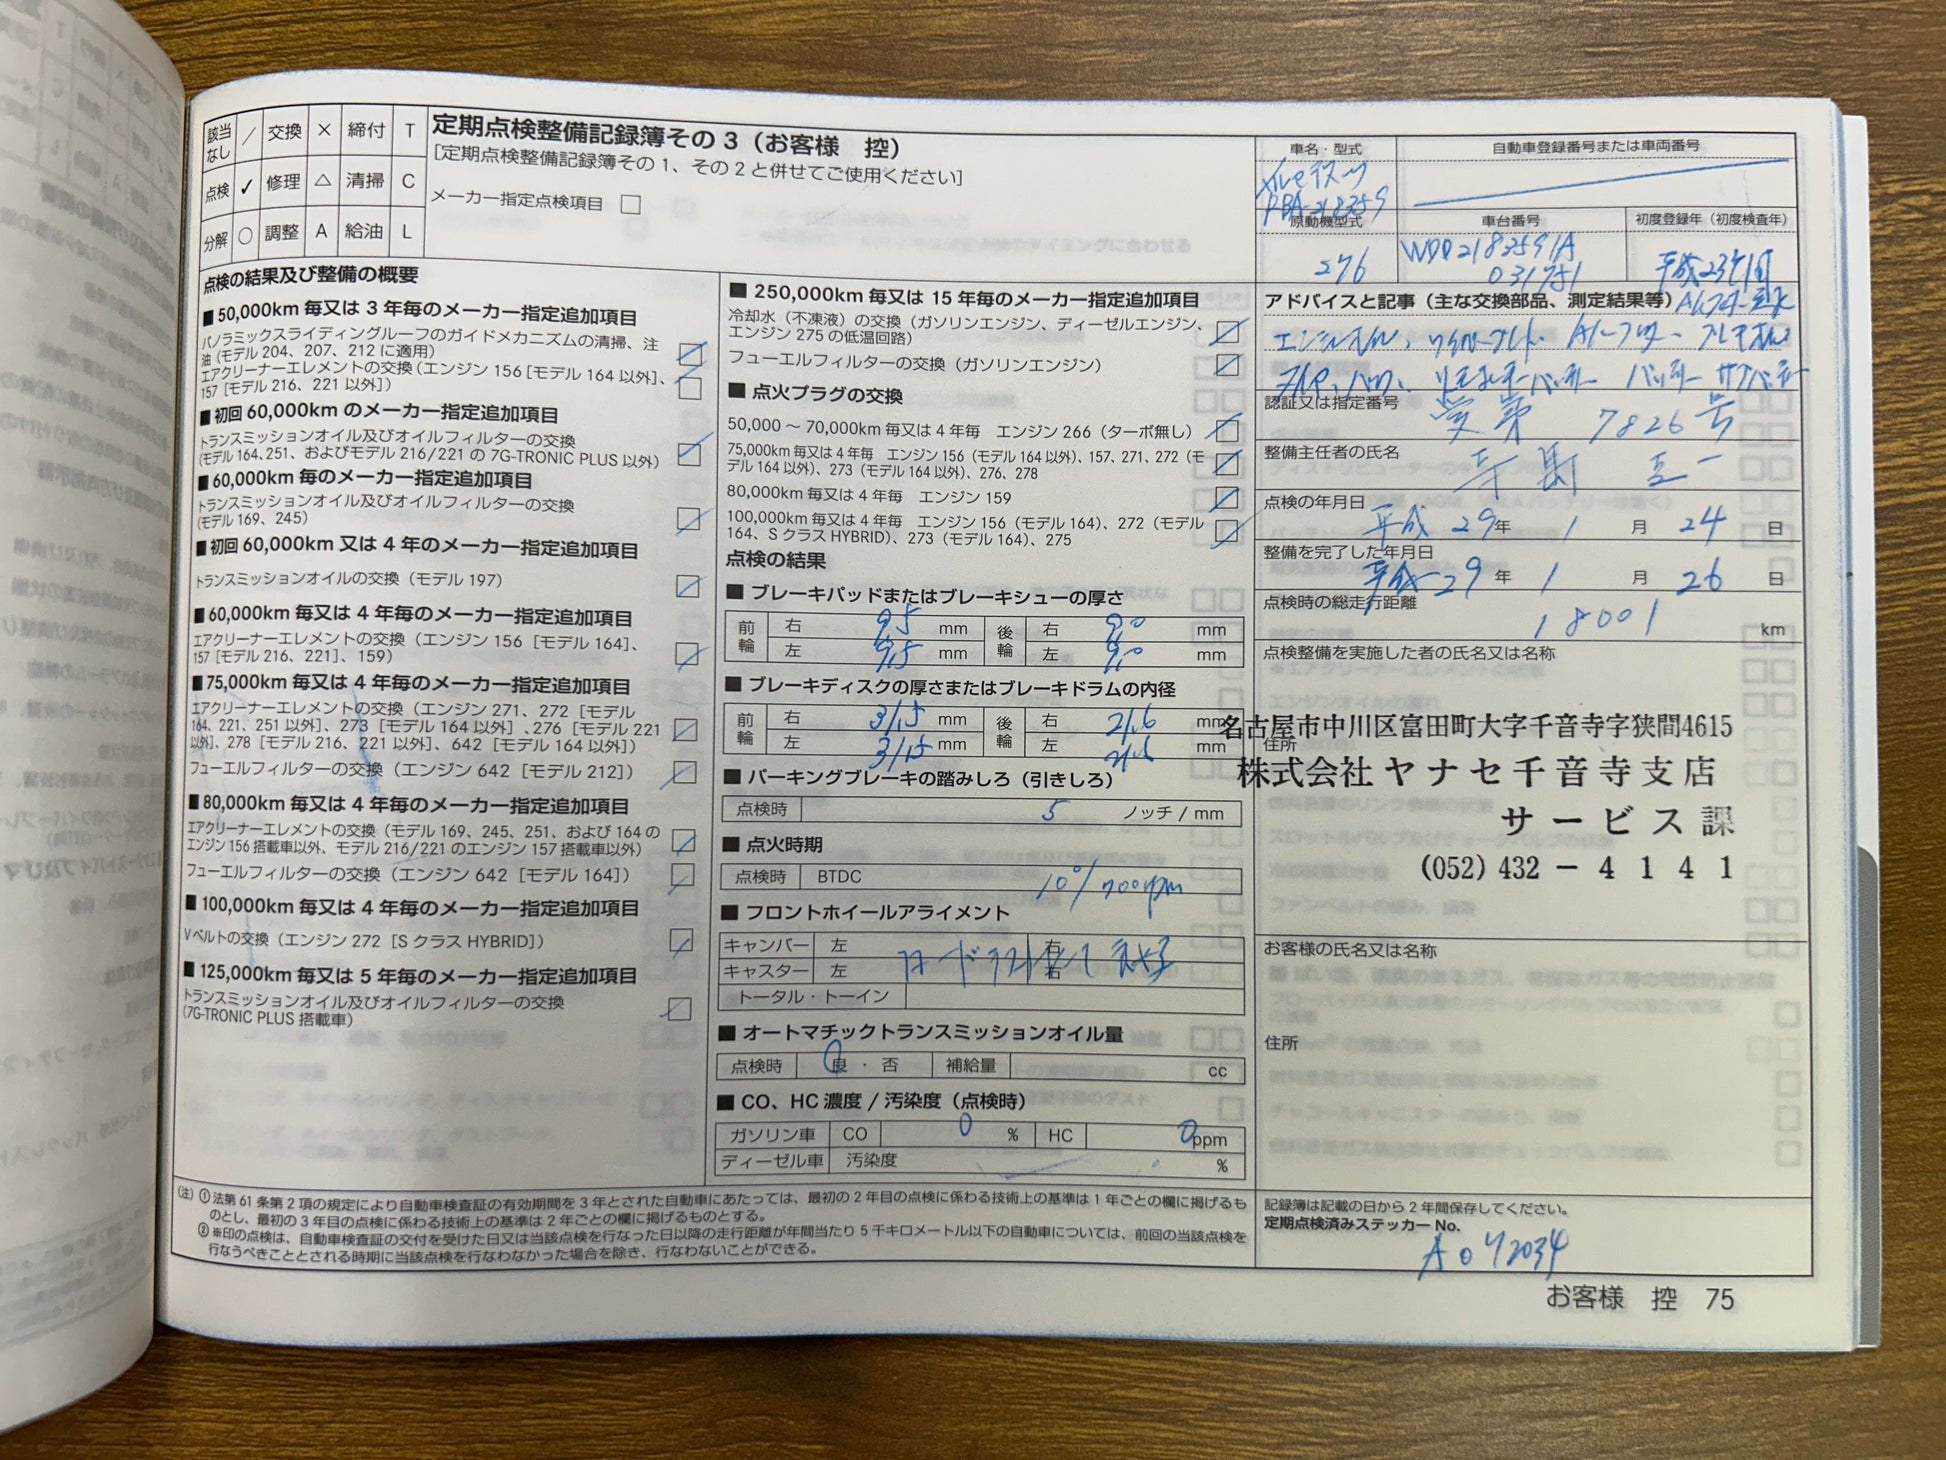 該当なし ／ 交換 × 締付 T
点検 ✓ 修理 △ 清掃 C
分解 ○ 調整 A 給油 L
定期点検整備記録簿その3（お客様　控）
[定期点検整備記録簿その1、その2と併せてご使用ください]
メーカー指定点検項目 □
点検の結果及び整備の概要
■50,000km毎又は3年毎のメーカー指定追加項目
パノラミックスライディングルーフのガイドメカニズムの清掃、注
油（モデル204、207、212に適用）
エアクリーナーエレメントの交換（エンジン156［モデル164以外］、
157［モデル216、221以外］）
■初回60,000kmのメーカー指定追加項目
トランスミッションオイル及びオイルフィルターの交換
（モデル164、251、およびモデル216/221の7G-TRONIC PLUS以外）
■60,000km毎のメーカー指定追加項目
トランスミッションオイル及びオイルフィルターの交換
（モデル169、245）
■初回60,000km又は4年のメーカー指定追加項目
トランスミッションオイルの交換（モデル197）
■60,000km毎又は4年毎のメーカー指定追加項目
エアクリーナーエレメントの交換（エンジン156［モデル164］、
157［モデル216、221］、159）
■75,000km毎又は4年毎のメーカー指定追加項目
エアクリーナーエレメントの交換（エンジン271、272［モデル
164、221、251以外］、273［モデル164以外］、276［モデル221
以外］、278［モデル216、221以外］、642［モデル164以外］）
フューエルフィルターの交換（エンジン642［モデル212］）
■80,000km毎又は4年毎のメーカー指定追加項目
エアクリーナーエレメントの交換（モデル169、245、251、および164の
エンジン156搭載車以外、モデル216/221のエンジン157搭載車以外）
フューエルフィルターの交換（エンジン642［モデル164］）
■100,000km毎又は4年毎のメーカー指定追加項目
Vベルトの交換（エンジン272［SクラスHYBRID］）
■125,000km毎又は5年毎のメーカー指定追加項目
トランスミッションオイル及びオイルフィルターの交換
（7G-TRONIC PLUS搭載車）
■250,000km毎又は15年毎のメーカー指定追加項目
冷却水（不凍液）の交換（ガソリンエンジン、ディーゼルエンジン、
エンジン275の低温回路）
フューエルフィルターの交換（ガソリンエンジン）
■点火プラグの交換
50,000～70,000km毎又は4年毎　エンジン266（ターボ無し）
75,000km毎又は4年毎　エンジン156（モデル164以外）、157、271、272（モ
デル164以外）、273（モデル164以外）、276、278
80,000km毎又は4年毎　エンジン159
100,000km毎又は4年毎　エンジン156（モデル164）、272（モデル
164、SクラスHYBRID）、273（モデル164）、275
点検の結果
■ブレーキパッドまたはブレーキシューの厚さ
前輪 右 9.5 mm 後輪 右 9.0 mm
左 9.5 mm 左 9.0 mm
■ブレーキディスクの厚さまたはブレーキドラムの内径
前輪 右 31.5 mm 後輪 右 21.6
左 31.5 mm 左 21.6
■パーキングブレーキの踏みしろ（引きしろ）
点検時 5 ノッチ/mm
■点火時期
点検時 BTDC 10°/700rpm
■フロントホイールアライメント
キャンバー 左 右
キャスター 左 右
トータル・トーイン
■オートマチックトランスミッションオイル量
点検時 良・否 補給量 cc
■CO、HC濃度/汚染度（点検時）
ガソリン車 CO 0 % HC 0 ppm
ディーゼル車 汚染度 %
車名・型式
メルセデスベンツ
RBA-218359
自動車登録番号または車両番号
原動機型式
276
車台番号
WDD2183591A
031751
初度登録年（初度検査年）
平成23年
アドバイスと記事（主な交換部品、測定結果等）
エンジンオイル、ワイパーブレード、
リモコンキーバッテリー バッテリー サブバッテリー
認証又は指定番号
7826号
整備主任者の氏名
点検の年月日
平成29年 1月 24日
整備を完了した年月日
平成29年 1月 26日
点検時の総走行距離
18001 km
点検整備を実施した者の氏名又は名称
名古屋市中川区富田町大字千音寺字狭間4615
住所
株式会社ヤナセ千音寺支店
サービス課
(052) 432－4141
お客様の氏名又は名称
住所
（注）①法第61条第2項の規定により自動車検査証の有効期間を3年とされた自動車にあたっては、最初の2年目の点検に係わる技術上の基準は1年ごとの欄に掲げるも
のとし、最初の3年目の点検に係わる技術上の基準は2年ごとの欄に掲げるものとする。
②※印の点検は、自動車検査証の交付を受けた日又は当該点検を行なった日以降の走行距離が年間当たり5千キロメートル以下の自動車については、前回の当該点検を
行なうべきこととされる時期に当該点検を行なわなかった場合を除き、行なわないことができる。
記録簿は記載の日から2年間保存してください。
定期点検済みステッカーNo.
A072034
お客様　控　75